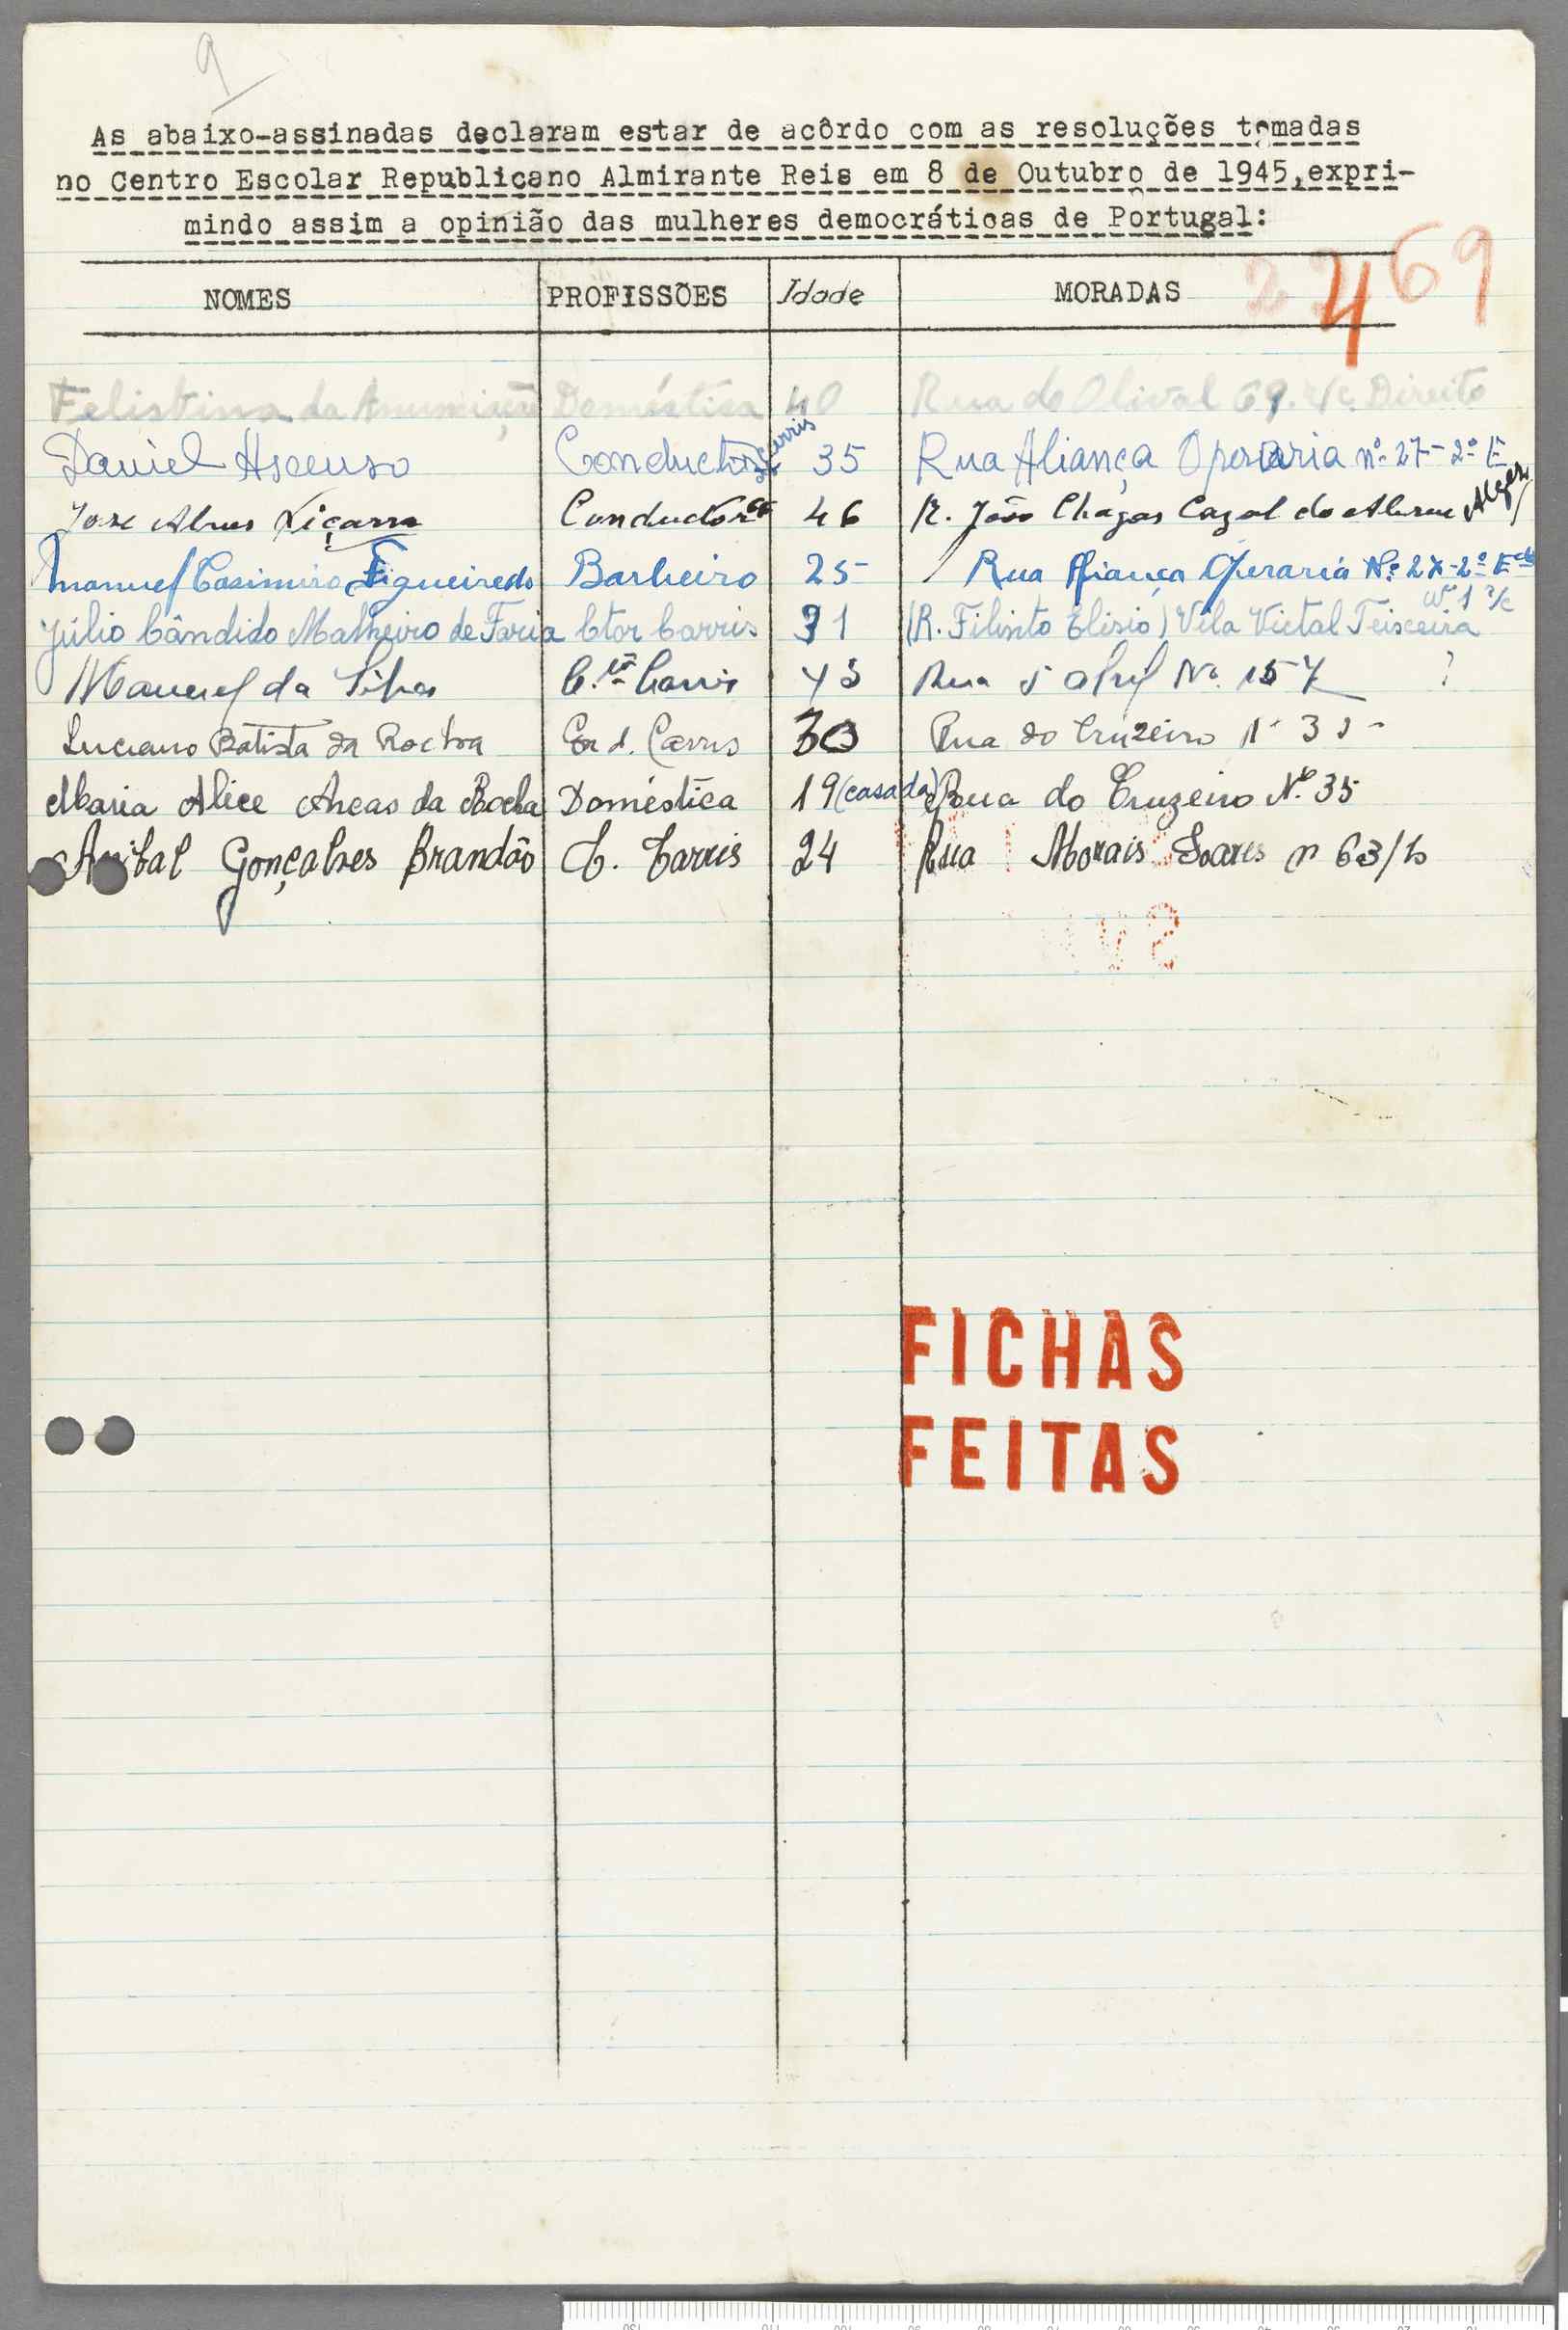 9
As abaixo-assinadas declaram estar de acôrdo com as resoluções tomadas
no Centro Escolar Republicano Almirante Reis em 8 de Outubro de 1945,expri-
mindo assim a opinião das mulheres democráticas de Portugal:
2469
NOMES PROFISSÕES Idade MORADAS
Felistina da Anunciação Doméstica 40 Rua do Olival 69. r/c. Direito
Daniel Ascenso Conductor Carris 35 Rua Aliança Operaria nº 27-2º E
José Alves Liçarra Conductor 46 R. João Chagas Cazal do Abreu Algés
Manuel Casimiro Figueiredo Barbeiro 25 Rua Aliança Operaria Nº 27-2º
Júlio Cândido Malheiro de Faria Ctor Carris 31 (R. Filinto Elisio) Vila Victal Teisceira nº 1 r/c
Manuel da Silva Carris 43 Rua No. 157 ?
Luciano Batista da Rocha Cond. Carris 30 Rua do Cruzeiro Nº 35
Maria Alice Areas da Rocha Doméstica 19 (casada) Rua do Cruzeiro Nº 35
Anibal Gonçalves Brandão C. Carris 24 Rua Morais Soares nº 63
FICHAS
FEITAS